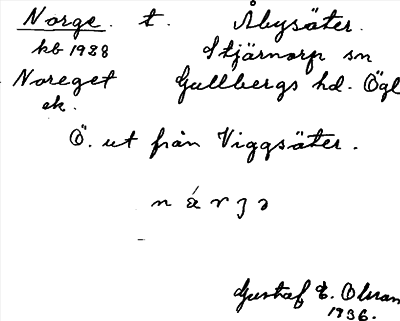 Norge. t. Åbysäter.
kb 1938 Stjärnorp sn
Noreget Gullbergs hd. Ögl
ek.
Ö. ut från Viggsäter.
n á r ʒ ə
Gustaf E. Olsson
1936.